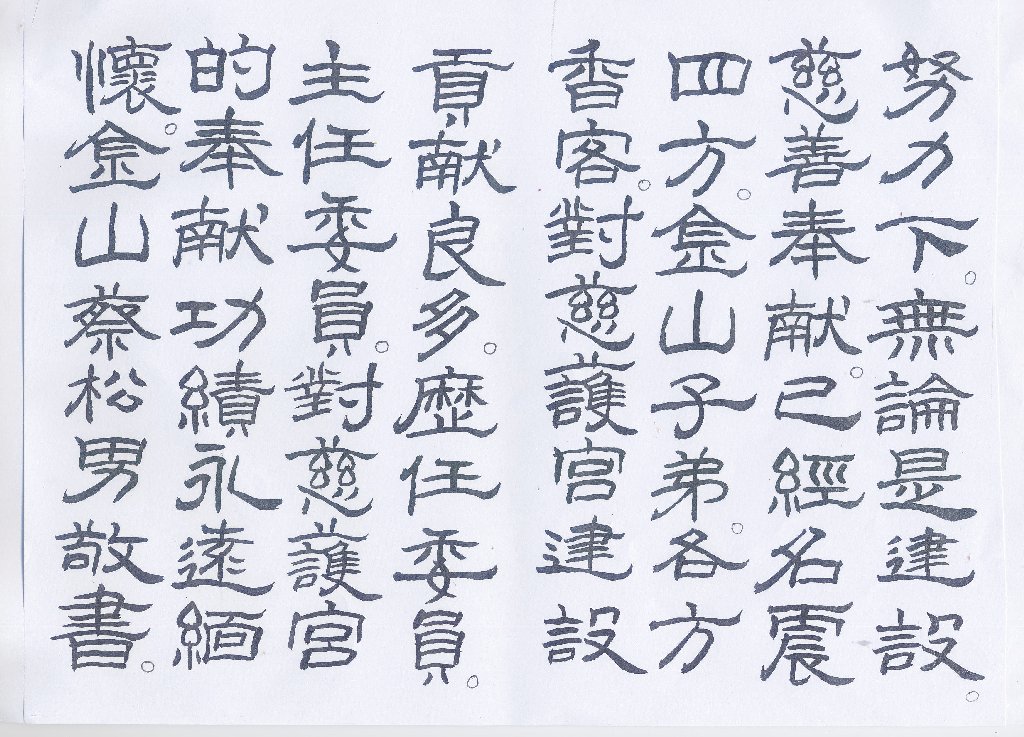 努力下。無論是建設。
慈善奉献。已經名震
四方。金山子弟。各方
香客。對慈護宮建設
貢献良多。歷任委員。
主任委員。對慈護宮
的奉献功績永遠緬
懷。金山蔡松男敬書。